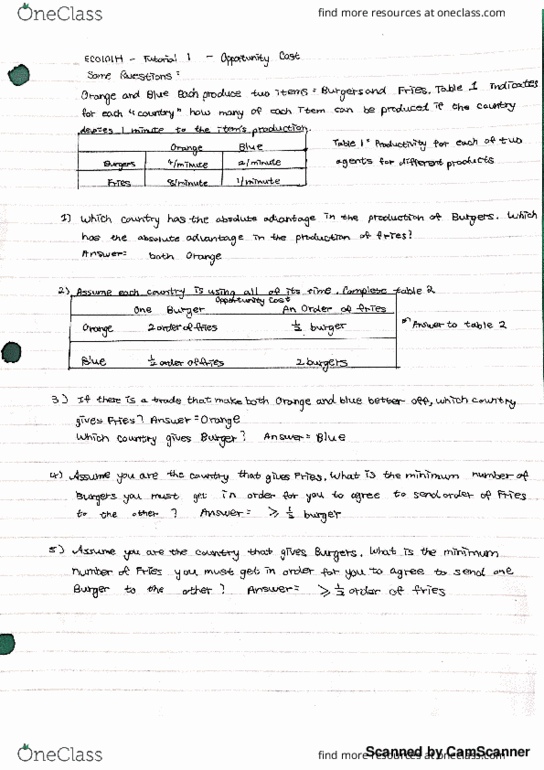 OneClass
find more resources at oneclass.com
ECO101H - Tutorial 1 - Opportunity Cost
Some Questions:
Orange and Blue Each produce two items = Burgers and Fries. Table 1 Indicates
for each "country" how many of each item can be produced if the country
devotes 1 minute to the item's production.
Orange Blue
Burgers 4/minute 2/minute
Fries 8/minute 1/minute
Table 1: Productivity for each of two
agents for different products
1) Which country has the absolute advantage in the production of Burgers. Which
has the absolute advantage in the production of fries?
Answer= both Orange
2) Assume each country is using all of its time. Complete table 2
Opportunity Cost
One Burger An Order of fries
Orange 2 order of fries ½ burger
Blue ½ order of fries 2 burgers
Answer to table 2
3) If there is a trade that make both Orange and blue better off, which country
gives Fries? Answer = Orange
Which country gives Burger? Answer = Blue
4) Assume you are the country that gives Fries. What is the minimum number of
Burgers you must get in order for you to agree to send order of Fries
to the other? Answer = ≥ ½ burger
5) Assume you are the country that gives Burgers. What is the minimum
number of Fries you must get in order for you to agree to send one
Burger to the other? Answer= ≥ ½ order of fries
OneClass
find more resources at oneclass.com
Scanned by CamScanner